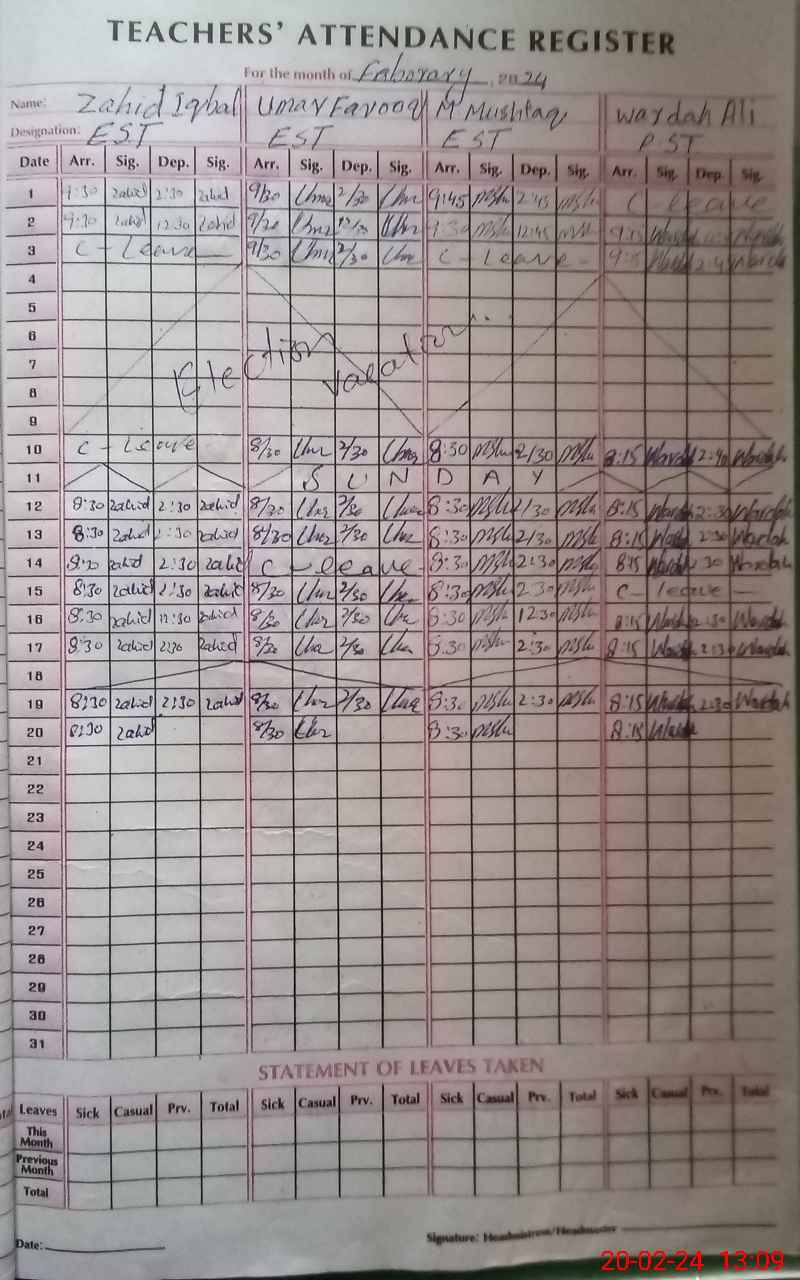 TEACHERS' ATTENDANCE REGISTER
For the month of Faborary, 2024
Name: Zahid Iqbal Umar Farooq M Mushtaq Wardah Ali
Designation: EST EST EST P.ST
Date Arr. Sig. Dep. Sig. Arr. Sig. Dep. Sig. Arr. Sig. Dep. Sig. Arr. Sig. Dep. Sig.
1 9:30 Zahid 2:30 Zahid 9/30 Umr 2/30 Umr 9:45 2:45 C - leave
2 9:30 Zahid 12:30 Zahid Umr Umr 9:30 12:45 9:15 Wardah Wardah
3 C - Leave 9/30 Umr 2/30 Umr C - Leave - 9:15 Wardah 2:45 Wardah
4
5
6
7
Election vacation..
8
9
10 C - Leave 8/30 Umr 2/30 Umr 8:30 2/30 8:15 Wardah 2:40 Wardah
11 SUNDAY
12 8:30 Zahid 2:30 Zahid 8/30 Umr 2/30 Umr 8:30 2/30 8:15 Wardah 2:30 Wardah
13 8:30 Zahid 2:30 Zahid 8/30 Umr 2/30 Umr 8:30 2/30 8:15 Wardah 2:30 Wardah
14 8:30 Zahid 2:30 Zahid C - leave 8:30 2:30 8:15 Wardah 30 Wardah
15 8:30 Zahid 2:30 Zahid 8/30 Umr 2/30 Umr 8:30 2:30 C - leave -
16 8:30 Zahid 12:30 Zahid 8/30 Umr 2/30 Umr 8:30 12:30 8:15 Wardah 2:30 Wardah
17 8:30 Zahid 2:30 Zahid 8/30 Umr 2/30 Umr 8:30 2:30 8:15 Wardah 2:30 Wardah
18
19 8:30 Zahid 2:30 Zahid 8/30 Umr 2/30 Umr 8:30 2:30 8:15 Wardah 2:30 Wardah
20 8:30 Zahid 8/30 Umr 8:30 8:15 Wardah
21
22
23
24
25
26
27
28
29
30
31
STATEMENT OF LEAVES TAKEN
Leaves Sick Casual Prv. Total Sick Casual Prv. Total Sick Casual Prv. Total Sick Casual Prv. Total
This Month
Previous Month
Total
Date: Signature: Headmistress/Headmaster
20-02-24 13:09